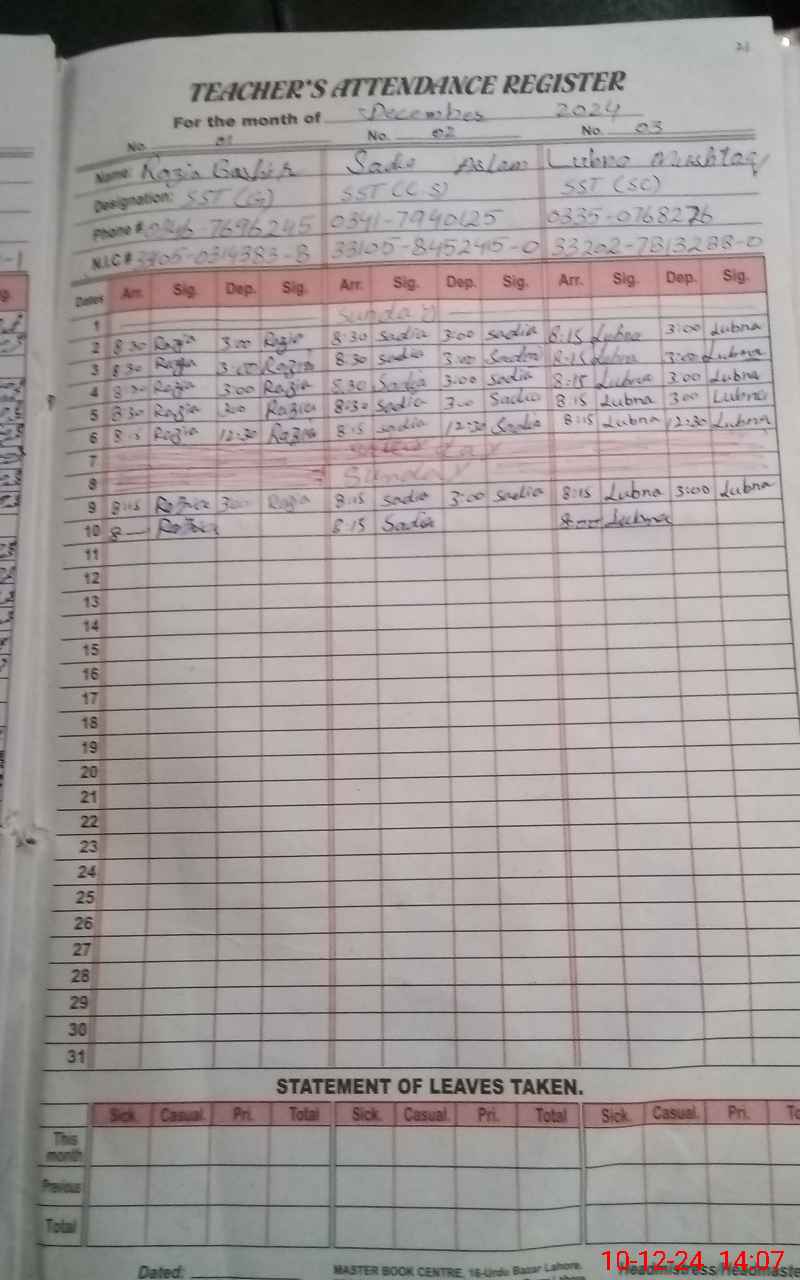 21
TEACHER'S ATTENDANCE REGISTER
For the month of December 2024
No. 01 No. 02 No. 03
Name: Razia Bashir Sadia Aslam Lubna Mushtaq
Designation: SST (G) SST (C.S) SST (SC)
Phone # 0346-7696245 0341-7940125 0335-0768276
N.I.C # 33105-845245-0 33202-7813288-0
Dates Arr. Sig. Dep. Sig. Arr. Sig. Dep. Sig. Arr. Sig. Dep. Sig.
1 Sunday
2 8:30 Razia 3:00 Razia 8:30 Sadia 3:00 Sadia 8:15 Lubna 3:00 Lubna
3 8:30 Razia 3:00 Razia 8:30 Sadia 3:00 Sadia 8:15 Lubna 3:00 Lubna
4 8:30 Razia 3:00 Razia 8:30 Sadia 3:00 Sadia 8:15 Lubna 3:00 Lubna
5 8:30 Razia 3:00 Razia 8:30 Sadia 3:00 Sadia 8:15 Lubna 3:00 Lubna
6 8:15 Razia 12:30 Razia 8:15 Sadia 12:30 Sadia 8:15 Lubna 12:30 Lubna
7
8 Sunday
9 8:15 Razia 3:00 Razia 8:15 Sadia 3:00 Sadia 8:15 Lubna 3:00 Lubna
10 8— Razia 8:15 Sadia 8— Lubna
11
12
13
14
15
16
17
18
19
20
21
22
23
24
25
26
27
28
29
30
31
STATEMENT OF LEAVES TAKEN.
Sick. Casual. Pri. Total Sick. Casual. Pri. Total Sick. Casual. Pri.
This month
Previous
Total
Dated: MASTER BOOK CENTRE, 16-Urdu Bazar Lahore. Headmistress/Headmaster
10-12-24 14:07